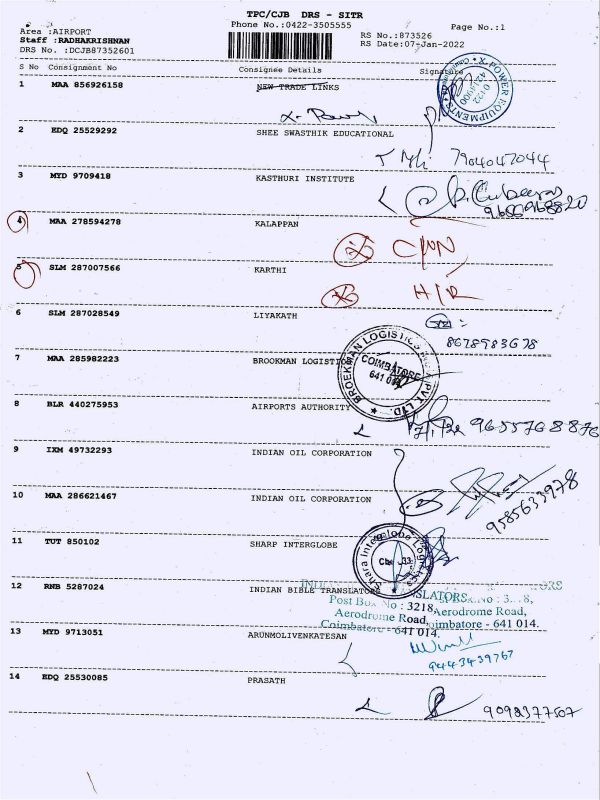 TPC/CJB DRS - SITR
Area :AIRPORT
Phone No.:0422-3505555
Page No.:1
Staff :RADHAKRISHNAN
RS No.:873526
DRS No. :DCJB87352601
RS Date:07-Jan-2022
S No Consignment No Consignee Details Signature
1 MAA 856926158 NEW TRADE LINKS
X-POWER EQUIPMENTS
2 EDQ 25529292 SHEE SWASTHIK EDUCATIONAL
7904047044
3 MYD 9709418 KASTHURI INSTITUTE
4 MAA 278594278 KALAPPAN
5 SLM 287007566 KARTHI
6 SLM 287028549 LIYAKATH
8678983678
7 MAA 285982223 BROOKMAN LOGISTICS
BROEKMAN LOGISTICS PVT. LTD.
COIMBATORE
8 BLR 440275953 AIRPORTS AUTHORITY
9655768876
9 IXM 49732293 INDIAN OIL CORPORATION
10 MAA 286621467 INDIAN OIL CORPORATION
9585633978
11 TUT 850102 SHARP INTERGLOBE
12 RNB 5287024 INDIAN BIBLE TRANSLATORS
Post Box No : 3218,
Aerodrome Road,
Coimbatore - 641 014.
13 MYD 9713051 ARUNMOLIVENKATESAN
9443439767
14 EDQ 25530085 PRASATH
9092377507